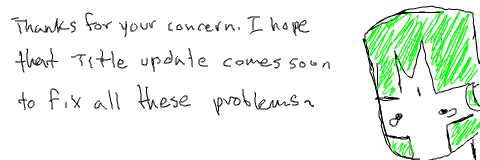 Thanks for your concern. I hope
that Title update comes soon
to fix all these problems~